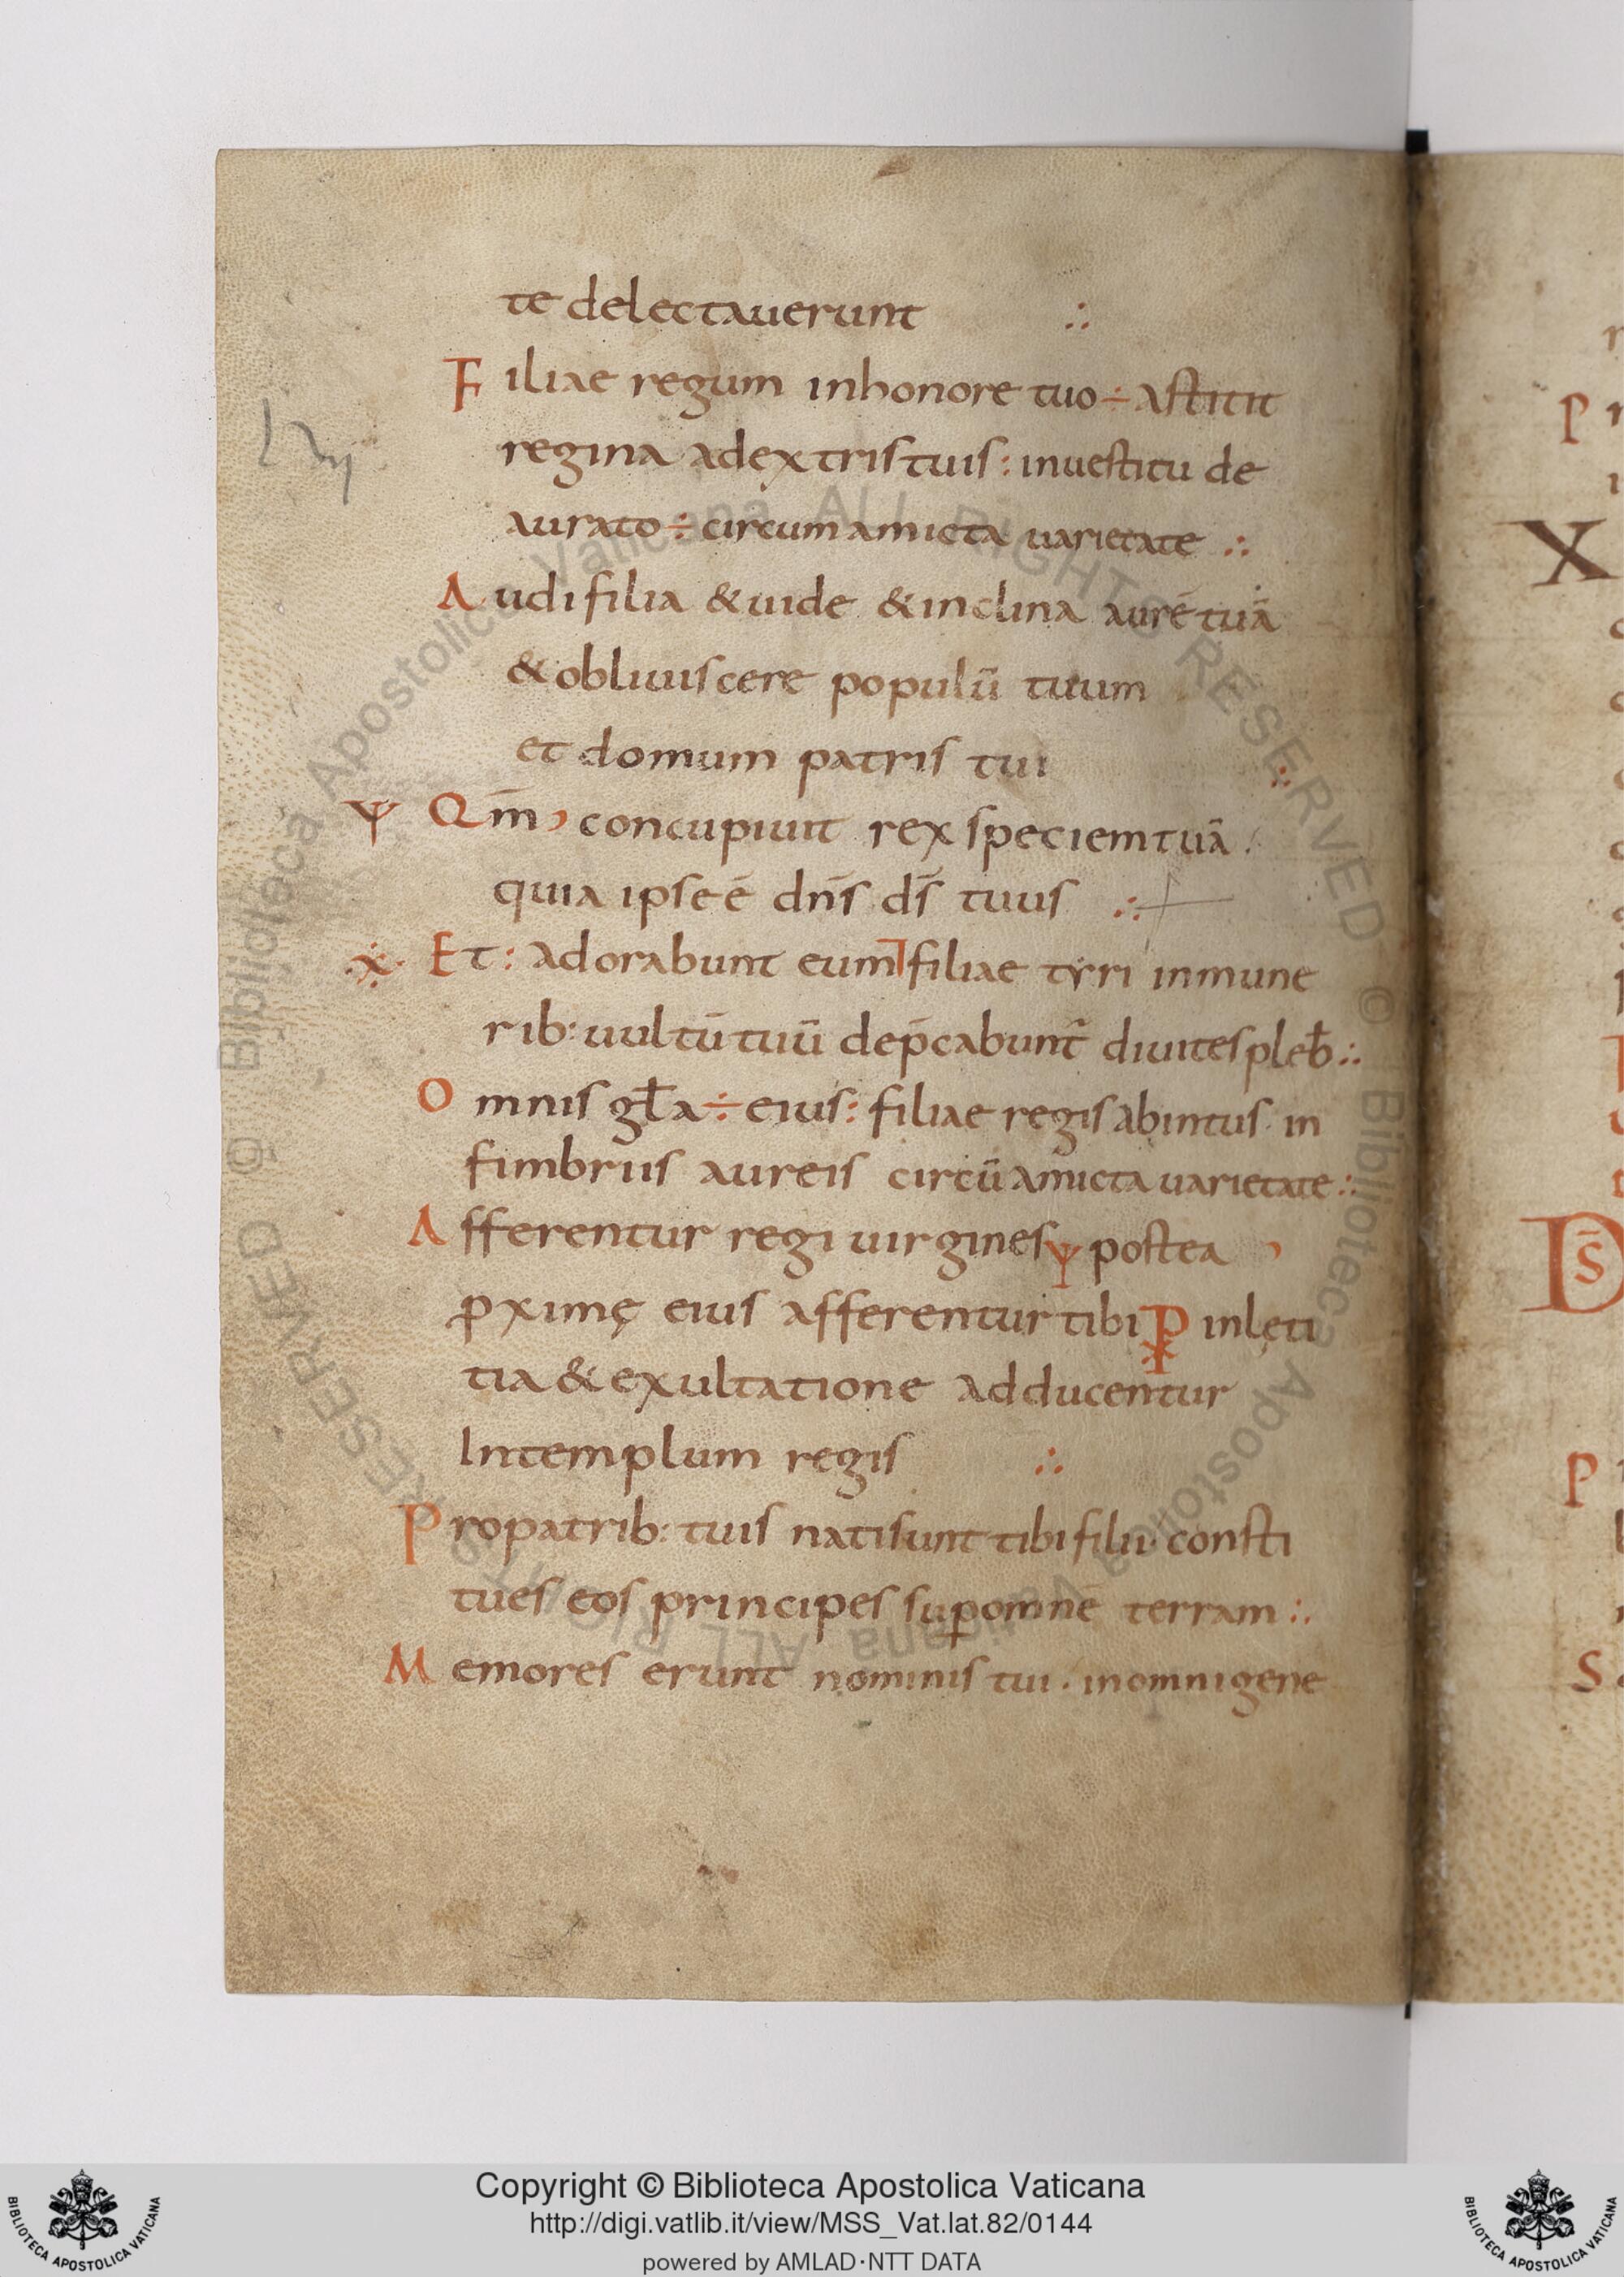 te delectauerunt ∴
Filiae regum inhonore tuo÷ astitit
regina adextris tuis: inuestitu de
aurato÷ circum amicta uarietate ∴
Audi filia & uide & inclina aurē tuā
& obliuiscere populū tuum
et domum patris tui ∴
Ψ Qm̄ concupiuit rex speciem tuā.
quia ipse ē dn̄s ds̄ tuus ∴
Et: adorabunt eum filiae tyri inmune
rib: uultū tuū dep̄cabunt̄ diuites pleb̄ ∴
Omnis gła÷ eius: filiae regis abintus in
fimbriis aureis circū amicta uarietate ∴
Afferentur regi uirgines Ψ postea
ꝓximę eius afferentur tibi inlęti
tia & exultatione adducentur
Intemplum regis ∴
Propatrib: tuis nati sunt tibi filii· consti
tues eos principes suꝑ omnē terram ∴
Memores erunt nominis tui · inomni gene
Copyright © Biblioteca Apostolica Vaticana
http://digi.vatlib.it/view/MSS_Vat.lat.82/0144
powered by AMLAD·NTT DATA